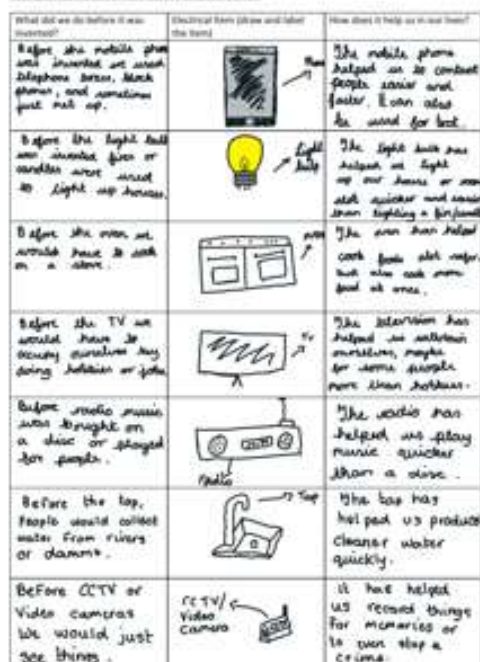 What did we do before it was
invented?
Electrical item (draw and label
the item)
How does it help us in our lives?
Before the mobile phone
was invented we used
telephone boxes, block
phones, and sometimes
just met up.
Phone
The mobile phone
helped us to contact
people easier and
faster. It can also
be used for
Before the light bulb
was invented fires or
candles were used
to light up houses.
Light
bulb
The light bulb has
helped us light
up our house or room
alot quicker and easier
than lighting a fire/candle
Before the oven we
would have to cook
on a stove.
oven
The oven has helped
cook foods alot safer
but also cook more
food at once.
Before the TV we
would have to
occupy ourselves by
doing hobbies or jobs.
TV
The television has
helped us entertain
ourselves, maybe
for some people
more than hobbies.
Before radio music
was bought on
a disc or played
for people.
radio
The radio has
helped us play
music quicker
than a disc.
Before the tap,
People would collect
water from rivers
or damms.
Tap
The tap has
helped us produce
cleaner water
quickly.
BeFore CCTV or
Video cameras
We would just
see things.
CCTV/
Video
Camera
it has helped
us record things
For memories or
to even stop a
crime.